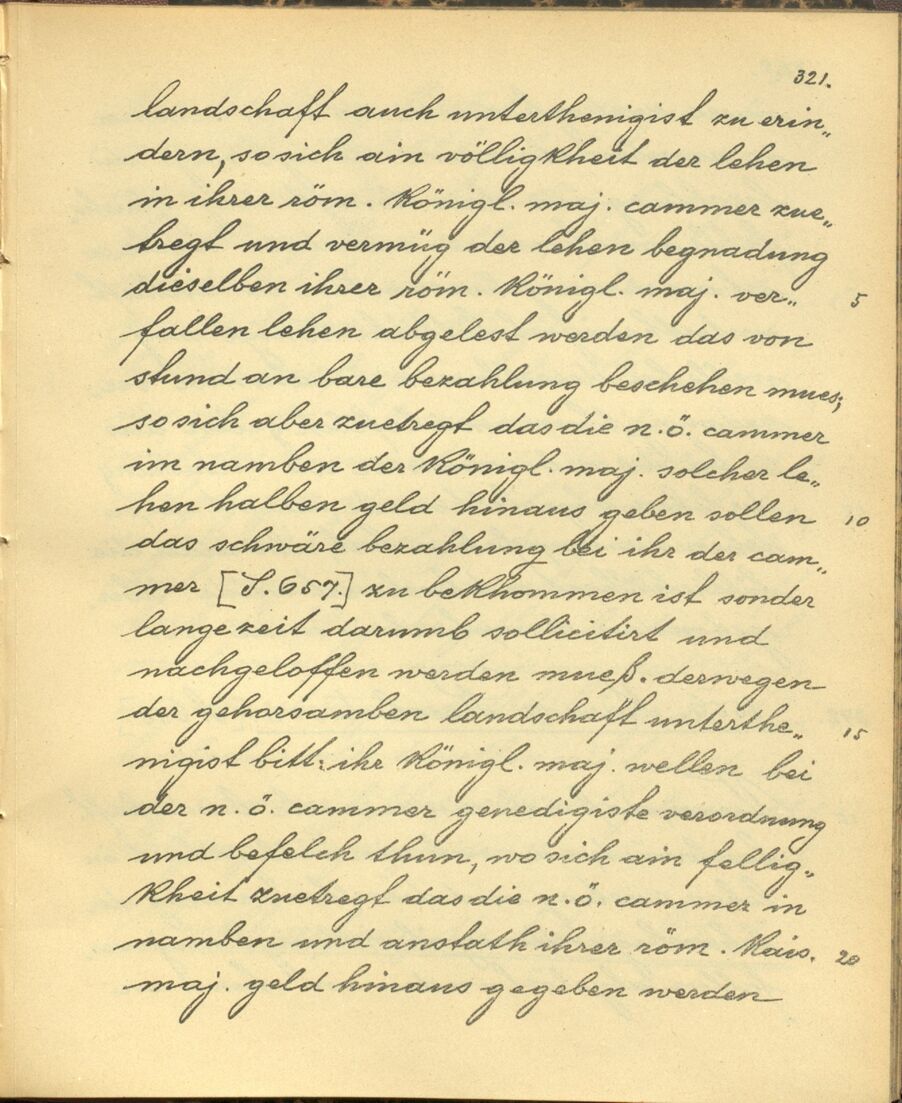 321.
landschaft auch unterthenigist zu erin„
dern, so sich ain völligkheit der lehen
in ihrer röm. Königl. maj. cammer zue„
tregt und vermüg der lehen begnadung
dieselben ihrer röm. Königl. maj. ver„ 5
fallen lehen abgelest werden das von
stund an bare bezahlung beschehen mues;
so sich aber zuetregt das die n.ö. cammer
im namben der Königl. maj. solcher le„
hen halben geld hinaus geben sollen 10
das schwäre bezahlung bei ihr der cam„
mer [S. 657.] zu bekhommen ist sonder
lange zeit darumb sollicitirt und
nachgeloffen werden mueß. derwegen
der gehorsamben landschaft unterthe„ 15
nigist bitt: ihr Königl. maj. wellen bei
der n.ö. cammer genedigiste verordnung
und befelch thun, wo sich ain fellig„
kheit zuetregt das die n.ö. cammer in
namben und anstath ihrer röm. Kais. 20
maj. geld hinaus gegeben werden